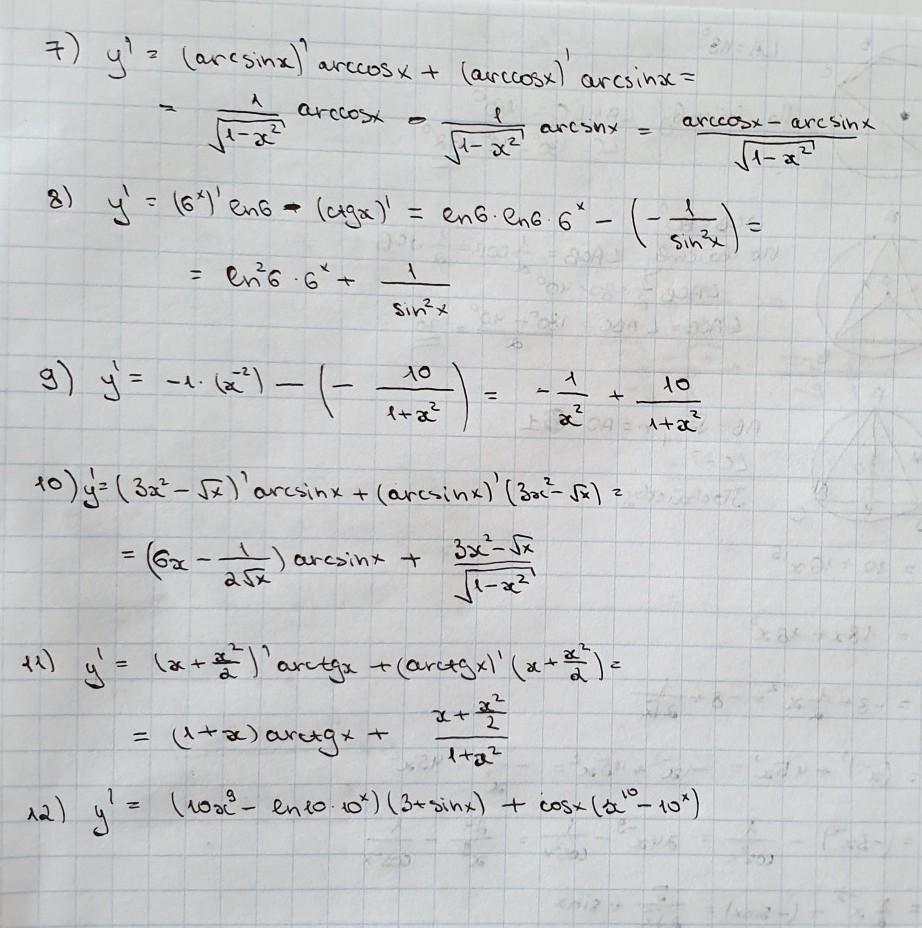 7) y' = (arcsinx)' arccosx + (arccosx)' arcsinx =
= 1/√(1-x²) arccosx - 1/√(1-x²) arcsinx = (arccosx - arcsinx)/√(1-x²)
8) y' = (6ˣ)' ln6 - (ctgx)' = ln6·ln6·6ˣ - (-1/sin²x) =
= ln²6·6ˣ + 1/sin²x
9) y' = -1·(x⁻²) - (-10/(1+x²)) = -1/x² + 10/(1+x²)
10) y' = (3x² - √x)' arcsinx + (arcsinx)' (3x² - √x) =
= (6x - 1/(2√x)) arcsinx + (3x² - √x)/√(1-x²)
11) y' = (x + x²/2)' arctgx + (arctgx)' (x + x²/2) =
= (1+x) arctgx + (x + x²/2)/(1+x²)
12) y' = (10x⁹ - ln10·10ˣ)(3+sinx) + cosx(x¹⁰ - 10ˣ)